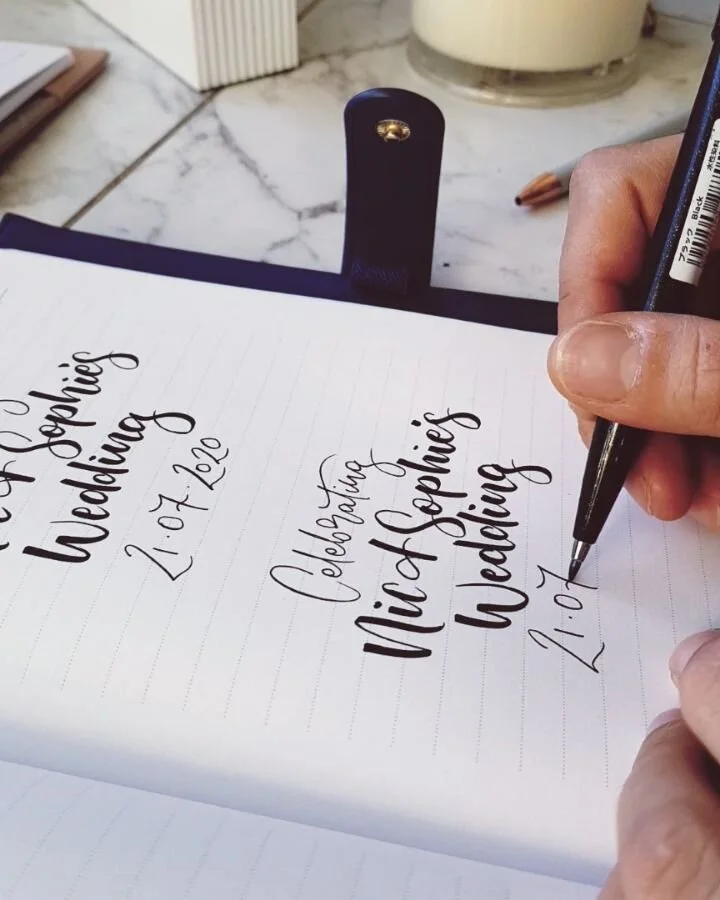 Sophie's
Wedding
21·07·2020
Celebrating
Nic & Sophie's
Wedding
21·07
ブラック Black
水性染料